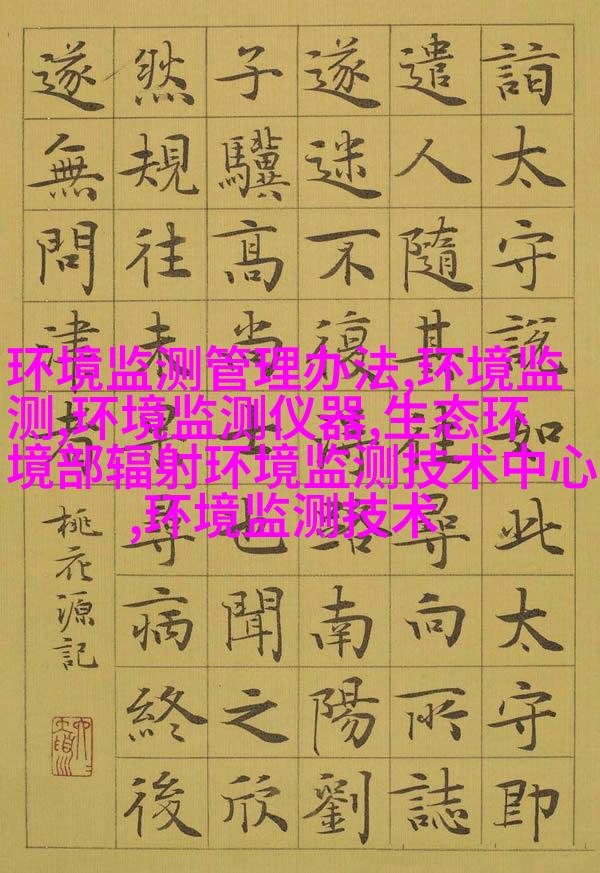 环境监测管理办法,环境监
测,环境监测仪器,生态环
境部辐射环境监测技术中心
,环境监测技术
詣太守說如此太守即
遣人隨其往尋向所誌
遂迷不復得路南陽劉
子驥高尚士也聞之欣
然規往未果尋病終後
遂無問津者
桃花源記